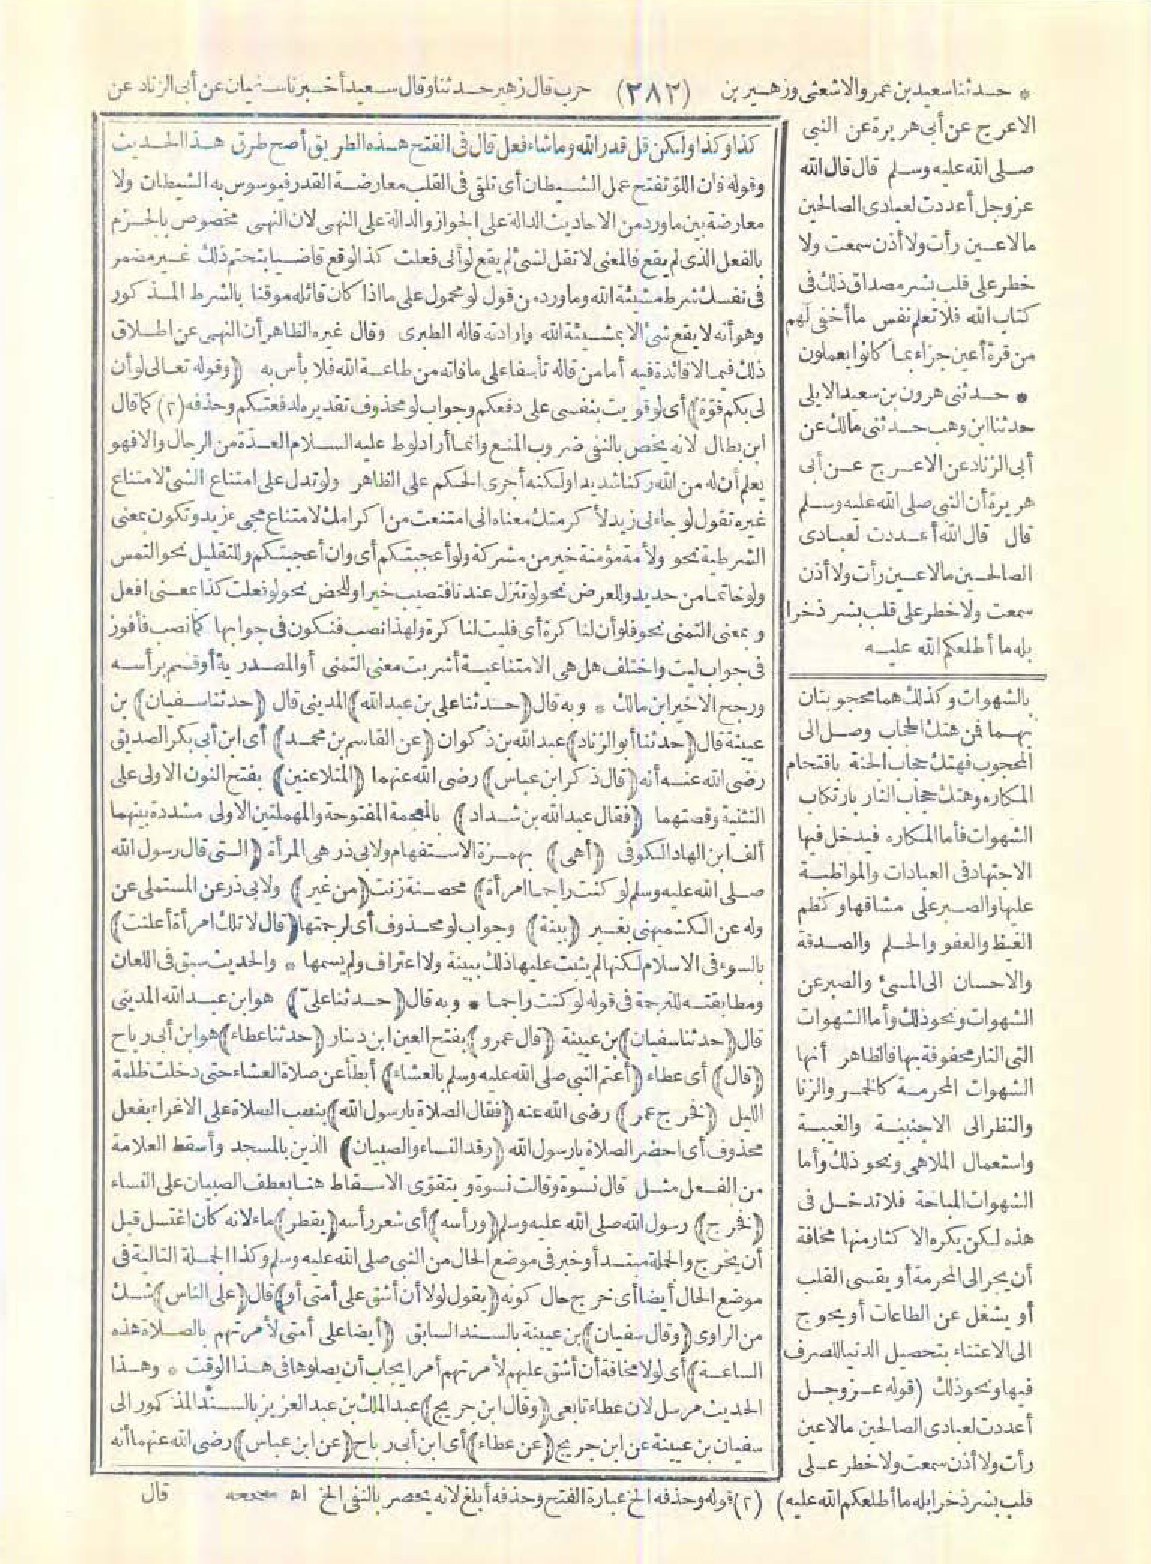 * حدثنا سعيد بن عمرو الاشعثى وزهير بن (٢٨٢) حرب قال زهير حدثنا وقال سعيد أخبرنا سفيان عن أبى الزناد عن
الاعرج عن أبى هريرة عن النبى
صلى الله عليه وسلم قال قال الله
عز وجل أعددت لعبادى الصالحين
مالا عين رأت ولا أذن سمعت ولا
خطر على قلب بشر مصداق ذلك فى
كتاب الله فلا تعلم نفس ما أخفى لهم
من قرة أعين جزاء بما كانوا يعملون
* حدثنى هرون بن سعيد الايلى
حدثنا ابن وهب حدثنى مالك عن
أبى الزناد عن الاعرج عن أبى
هريرة أن النبى صلى الله عليه وسلم
قال قال الله أعددت لعبادى
الصالحين مالا عين رأت ولا أذن
سمعت ولا خطر على قلب بشر ذخرا
بله ما أطلعكم الله عليه
بالشهوات وكذلك هما محجوبتان
بهما فمن هتك الحجاب وصل الى
المحجوب فهتك حجاب الجنة باقتحام
المكاره وهتك حجاب النار بارتكاب
الشهوات فأما المكاره فيدخل فيها
الاجتهاد فى العبادات والمواظبة
عليها والصبر على مشاقها وكظم
الغيظ والعفو والحلم والصدقة
والاحسان الى المسئ والصبر عن
الشهوات ونحو ذلك وأما الشهوات
التى النار محفوفة بها فالظاهر أنها
الشهوات المحرمة كالخمر والزنا
والنظر الى الاجنبية والغيبة
واستعمال الملاهى ونحو ذلك وأما
الشهوات المباحة فلا تدخل فى
هذه لكن يكره الاكثار منها مخافة
أن يجر الى المحرمة أو يقسى القلب
أو يشغل عن الطاعات أو يحوج
الى الاعتناء بتحصيل الدنيا للصرف
فيها ونحو ذلك (قوله عز وجل
أعددت لعبادى الصالحين مالا عين
رأت ولا أذن سمعت ولا خطر على
قلب بشر ذخرا بله ما أطلعكم الله عليه)
كذا وكذا ولكن قل قدر الله وما شاء فعل قال فى الفتح هذه الطريق أصح طرق هذا الحديث
وقوله فان اللو تفتح عمل الشيطان أى تلقى فى القلب معارضة القدر فيوسوس به الشيطان ولا
معارضة بين ما ورد من الاحاديث الدالة على الجواز والدالة على النهى لان النهى مخصوص بالجزم
بالفعل الذى لم يقع فالمعنى لا تقل لشئ لم يقع لو أنى فعلت كذا لوقع قاضيا بتحتم ذلك غير مضمر
فى نفسك شرط مشيئة الله وما ورد من قول لو محمول على ما اذا كان قائله موقنا بالشرط المذكور
وهو أنه لا يقع شئ الا بمشيئة الله وارادته قاله الطبرى وقال غيره الظاهر أن النهى عن اطلاق
ذلك فيما لا فائدة فيه أما من قاله تأسفا على ما فاته من طاعة الله فلا بأس به (وقوله تعالى لو أن
لى بكم قوّة) أى لو قويت بنفسى على دفعكم وجواب لو محذوف تقديره لدفعتكم وحذفه (٢) كما قال
ابن بطال لانه يخص بالنفى ضروب المنع وانما أراد لوط عليه السلام العدّة من الرجال والا فهو
يعلم أن له من الله ركنا شديدا ولكنه أجرى الحكم على الظاهر ولو تدل على امتناع الشئ لامتناع
غيره تقول لو جاءنى زيد لأكرمتك معناه انى امتنعت من اكرامك لامتناع مجئ زيد وتكون بمعنى
الشرطية نحو ولأمة مؤمنة خير من مشركة ولو أعجبتكم أى وان أعجبتكم وللتقليل نحو التمس
ولو خاتما من حديد وللعرض نحو لو تنزل عندنا فتصيب خيرا وللحض نحو لو فعلت كذا بمعنى افعل
وبمعنى التمنى نحو فلو أن لنا كرة أى فليت لنا كرة ولهذا نصب فنكون فى جوابها كما نصب فأفوز
فى جواب ليت واختلف هل هى الامتناعية أشربت معنى التمنى أو المصدرية أو قسم برأسه
ورجح الاخير ابن مالك * وبه قال (حدثنا على بن عبد الله) المدينى قال (حدثنا سفيان) بن
عيينة قال (حدثنا أبو الزناد) عبد الله بن ذكوان (عن القاسم بن محمد) أى ابن أبى بكر الصديق
رضى الله عنه أنه (قال ذكر ابن عباس) رضى الله عنهما (المتلاعنين) بفتح النون الاولى على
التثنية وقصتهما (فقال عبد الله بن شداد) بالمعجمة المفتوحة والمهملتين الاولى مشددة بينهما
ألف ابن الهاد الكوفى (أهى) بهمزة الاستفهام ولابى ذر هى المرأة (التى قال رسول الله
صلى الله عليه وسلم لو كنت راجما امرأة) محصنة زنت (من غير) ولابى ذر عن المستملى عن
وله عن الكشميهنى بغير (بينة) وجواب لو محذوف أى لرجمتها (قال لا تلك امرأة أعلنت)
بالسوء فى الاسلام لكنها لم يثبت عليها ذلك ببينة ولا اعتراف ولم يسمها * والحديث سبق فى اللعان
ومطابقته للترجمة فى قوله لو كنت راجما * وبه قال (حدثنا علىّ) هو ابن عبد الله المدينى
قال (حدثنا سفيان) بن عيينة (قال عمرو) بفتح العين ابن دينار (حدثنا عطاء) هو ابن أبى رباح
(قال) أى عطاء (أعتم النبى صلى الله عليه وسلم بالعشاء) أبطأ عن صلاة العشاء حتى دخلت ظلمة
الليل (فخرج عمر) رضى الله عنه (فقال الصلاة يا رسول الله) بنصب الصلاة على الاغراء بفعل
محذوف أى احضر الصلاة يا رسول الله (رقد النساء والصبيان) الذين بالمسجد وأسقط العلامة
من الفعل مثل قال نسوة وقالت نسوة ويتقوى الاسقاط هنا بعطف الصبيان على النساء
(فخرج) رسول الله صلى الله عليه وسلم (ورأسه) أى شعر رأسه (يقطر) ماء لانه كان اغتسل قبل
أن يخرج والجملة مبتدأ وخبر فى موضع الحال من النبى صلى الله عليه وسلم وكذا الجملة التالية فى
موضع الحال أيضا أى خرج حال كونه (يقول لولا أن أشق على أمتى أو) قال (على الناس) شك
من الراوى (وقال سفيان) بن عيينة بالسند السابق (أيضا على أمتى لأمرتهم بالصلاة هذه
الساعة) أى لولا مخافة أن أشق عليهم لأمرتهم أمر ايجاب أن يصلوها فى هذا الوقت * وهذا
الحديث مرسل لان عطاء تابعى (وقال ابن جريج) عبد الملك بن عبد العزيز بالسند المذكور الى
سفيان بن عيينة عن ابن جريج (عن عطاء) أى ابن أبى رباح (عن ابن عباس) رضى الله عنهما أنه
(٢) قوله وحذفه الخ عبارة الفتح وحذفه أبلغ لانه يحصر بالنفى الخ اه مصححه
قال